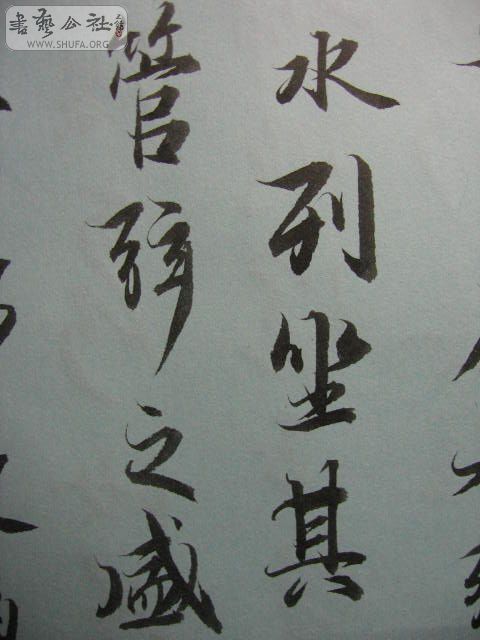 水列坐其
管弦之盛
書藝公社
WWW.SHUFA.ORG